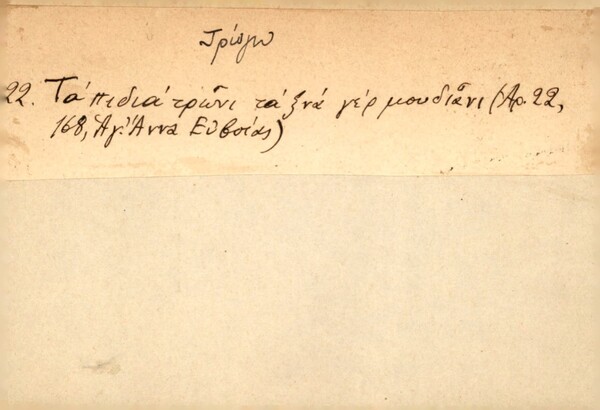 Τρώγω
22. Τά πιδιά τρῶνι τά ξνά γέρ μουδιᾶνι (Αρ. 22,
168, Ἁγ. Ἄννα Εὐβοίας)